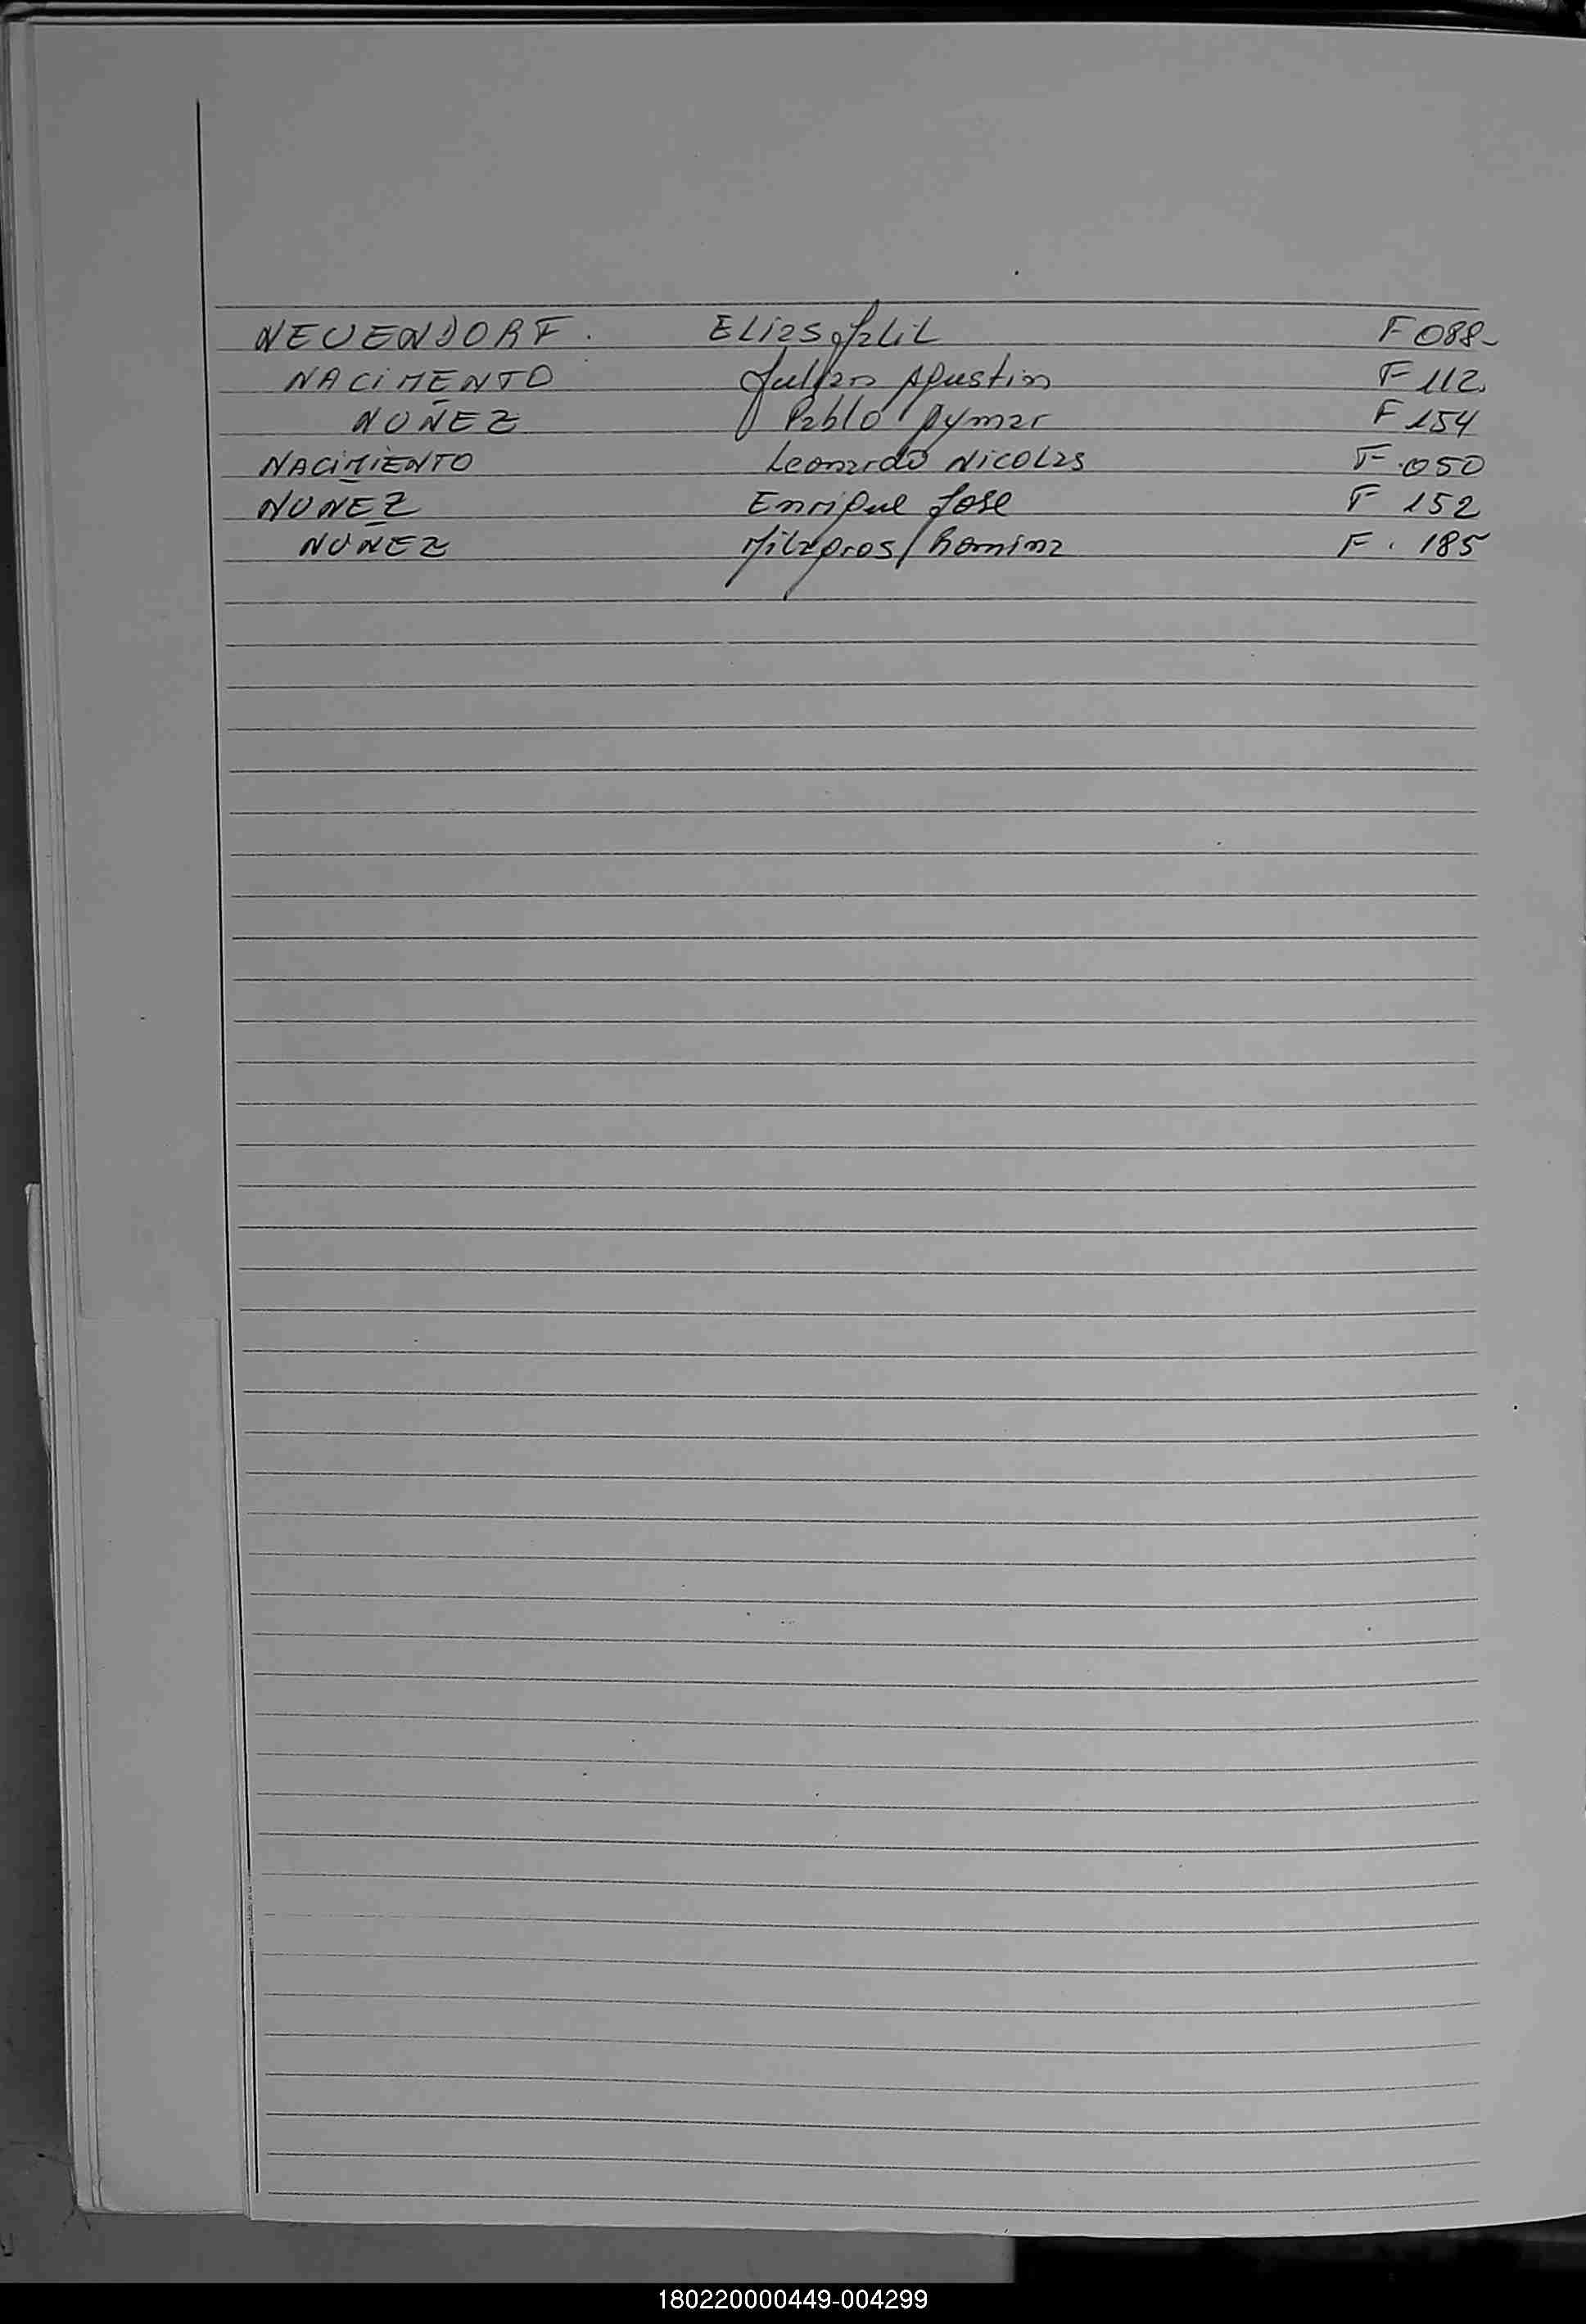 NEUENDORF. Elias F 088-
NACIMENTO Julian Agustin F 112.
NUÑEZ Pablo Aymar F 154
NACIMIENTO Leonardo Nicolas F. 050
NUÑEZ Enrique Jose F 152
NUÑEZ Milagros Romina F. 185
180220000449-004299